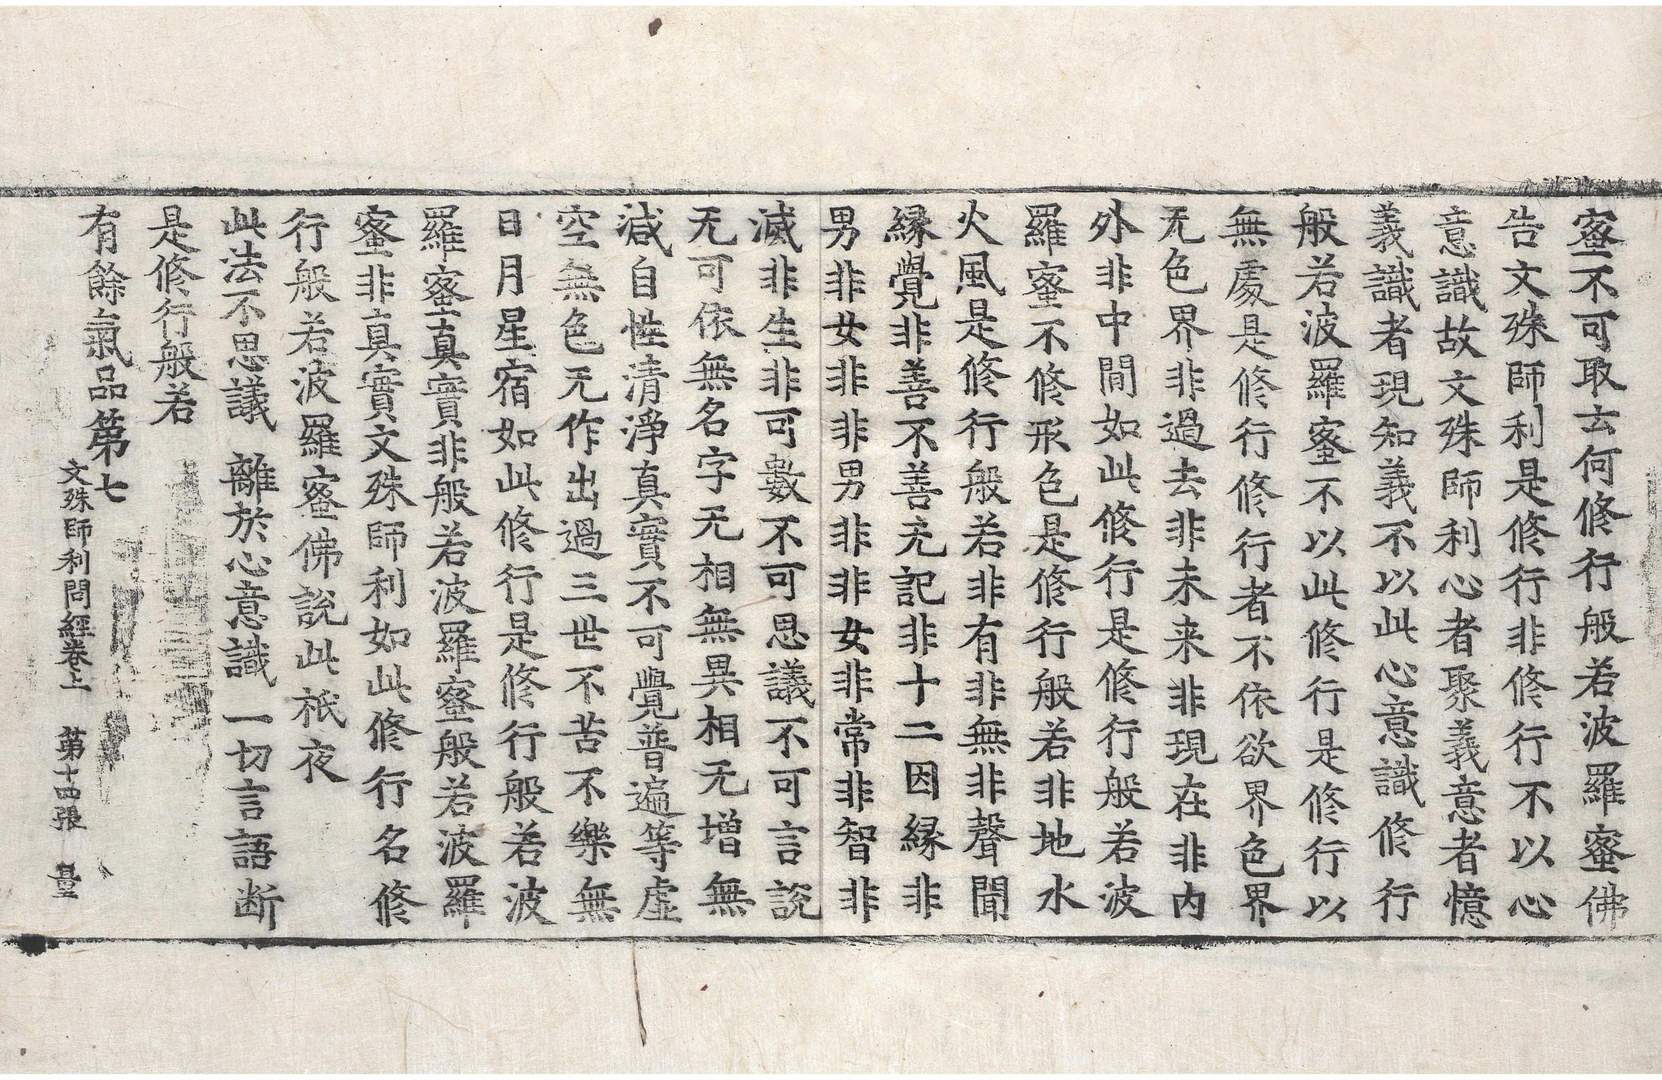 蜜不可取云何修行般若波羅蜜佛
告文殊師利是修行非修行不以心
意識故文殊師利心者聚義意者憶
義識者現知義不以此心意識修行
般若波羅蜜不以此修行是修行以
無處是修行修行者不依欲界色界
无色界非過去非未来非現在非内
外非中間如此修行是修行般若波
羅蜜不修形色是修行般若非地水
火風是修行般若非有非無非聲聞
緣覺非善不善无記非十二因緣非
男非女非非男非非女非常非智非
滅非生非可數不可思議不可言說
无可依無名字无相無異相无增無
減自性清淨真實不可覺普遍等虛
空無色无作出過三世不苦不樂無
日月星宿如此修行是修行般若波
羅蜜真實非般若波羅蜜般若波羅
蜜非真實文殊師利如此修行名修
行般若波羅蜜佛說此祇夜
此法不思議 離於心意識 一切言語断
是修行般若
有餘氣品第七
文殊師利問經卷上 第十四張 量